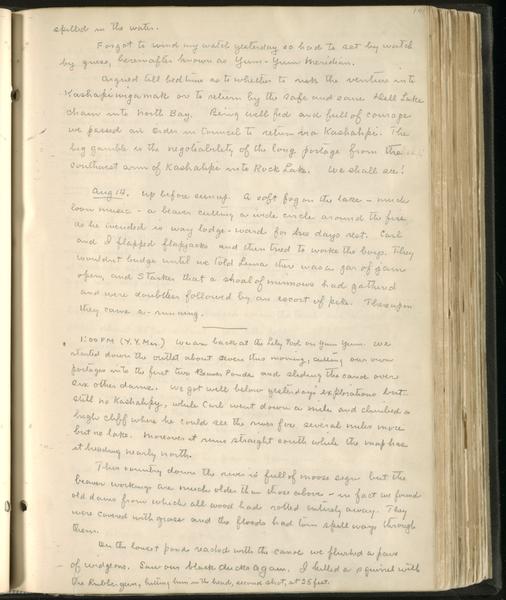 spilled in the water.
Forgot to wind my watch yesterday so had to set my watch
by guess, hereafter known as Yum-Yum Meridian.
Argued till bedtime as to whether to risk the venture into
or to return by the safe and sane Hell Lake
chain into North Bay. Being well fed and full of courage
we passed an Order in Council to return via Kashahpi. The
big gamble is the negotiability of the long portage from the
southwest arm of Kashahpi into Rock Lake. We shall see!
Aug 14. Up before sunup. A soft fog on the lake - much
loon music - a beaver cutting a wide circle around the fire
as he wended is way lodge-ward for his days rest. Carl
and I flapped flapjacks and then tried to wake the boys. They
wouldn't budge until we told Luna there was a jar of jam
open, and Starker that a shoal of minnows had gathered
and were doubtless followed by an escort of pike. Thereupon
they came a-running.
1:00 PM (Y.Y. Mer.) We are back at the Lily Pad on Yum Yum. We
started down the outlet about seven this morning, cutting our own
portages into the first two Beaver Ponds and sliding the canoe over
six other dams. We got well below yesterday's explorations but
still no Kashahpi, while Carl went down a mile and climbed a
high cliff where he could see the river for several miles more
but no lake. Moreover it runs straight south while the map has
it heading nearly north.
This country down the river is full of moose sign but the
beaver workings are much older than those above - in fact we found
old dams from which all wood had rotted entirely away. They
were covered with grass and the floods had torn spillways through
them.
On the lowest ponds reached with the canoe we flushed a pair
of widgeons. Saw our black ducks again. I killed a squirrel with
the Rubber gun, hitting him in the head, second shot, at 25 feet.